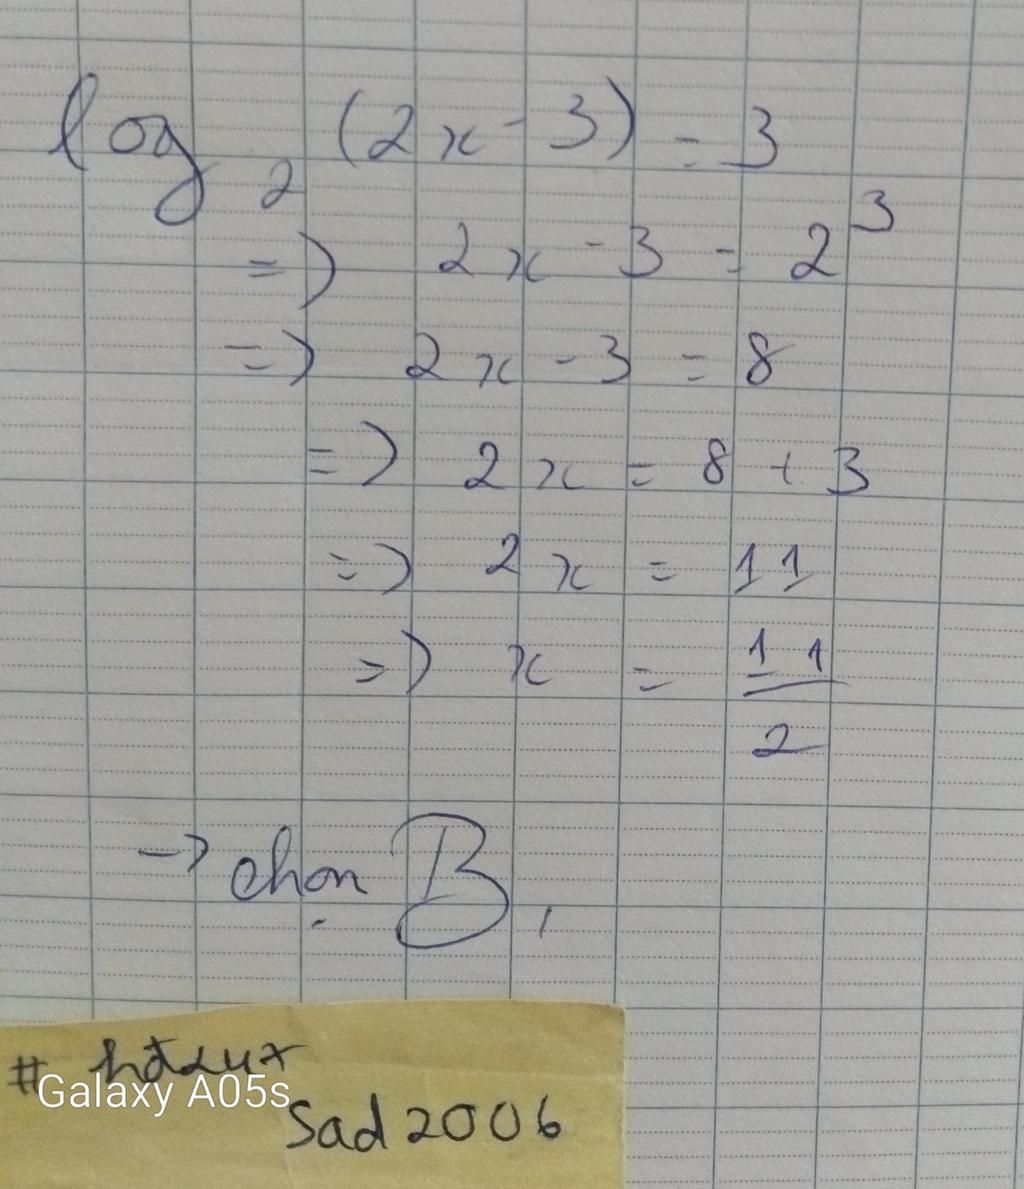 log₂ (2x - 3) = 3
=> 2x - 3 = 2³
=> 2x - 3 = 8
=> 2x = 8 + 3
=> 2x = 11
=> x = 11/2
-> chọn B,
#
Galaxy A05s
Sad 2006